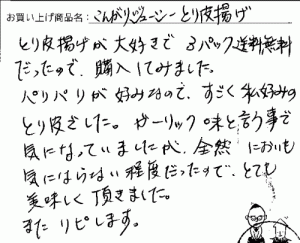 お買い上げ商品名：こんがりジューシーとり皮揚げ
とり皮揚げが大好きで3パック送料無料
だったので、購入してみました。
パリパリが好みなので、すごく私好みの
とり皮でした。ガーリック味と言う事で
気になっていましたが、全然においも
気にならない程度だったので、とても
美味しく頂きました。
またリピします。